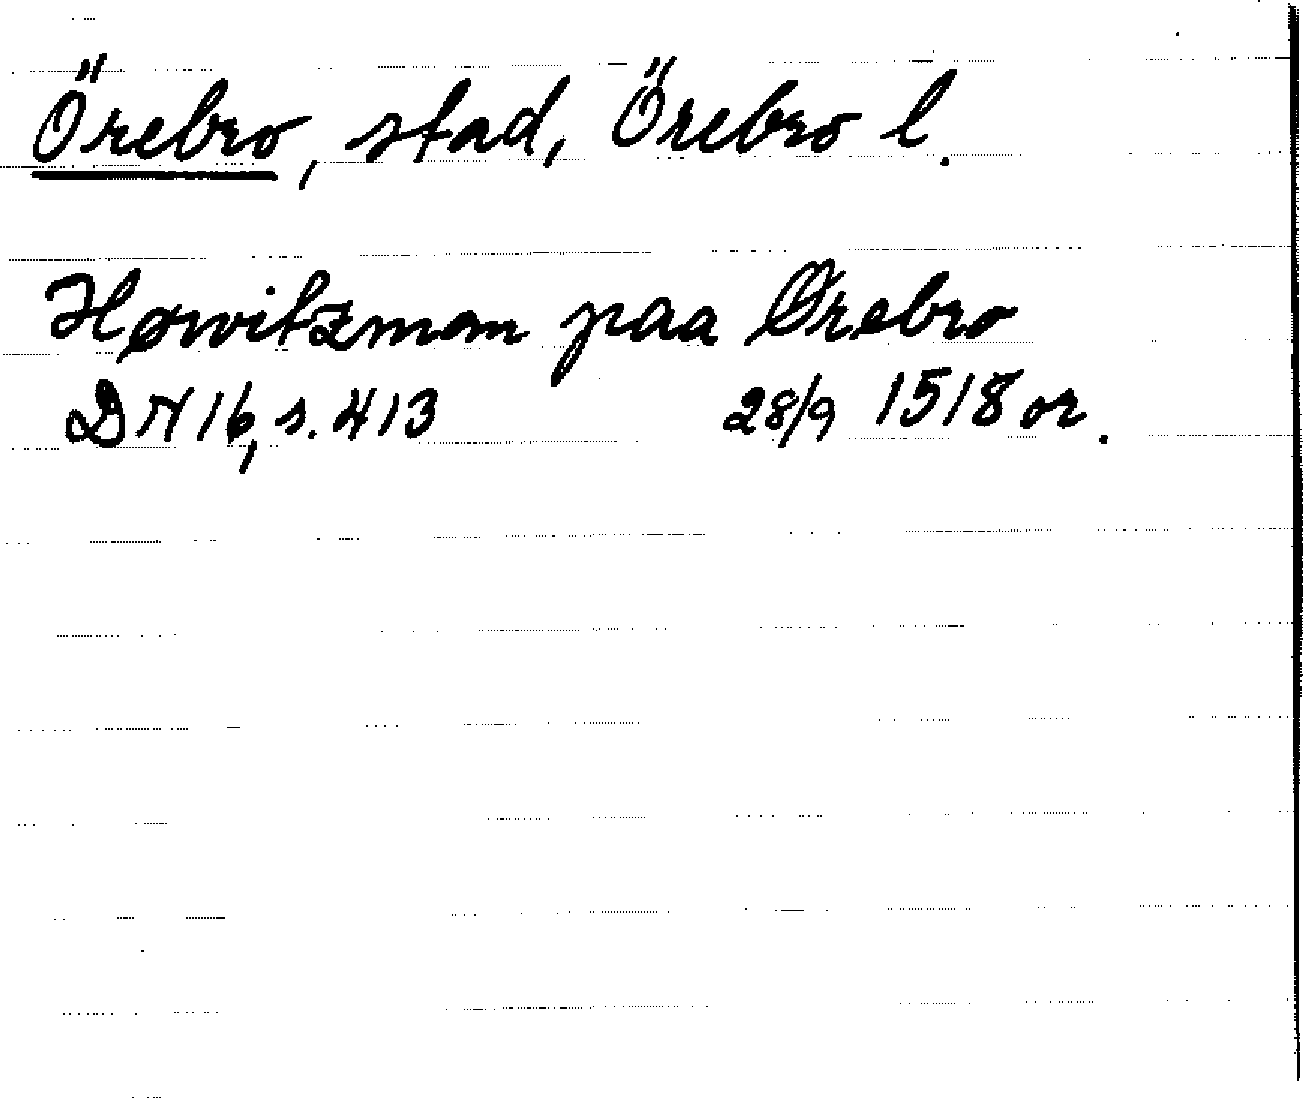 Örebro, stad, Örebro l.
Høwitzman paa Ørebro
DN 16, s. 413 28/9 1518 or.